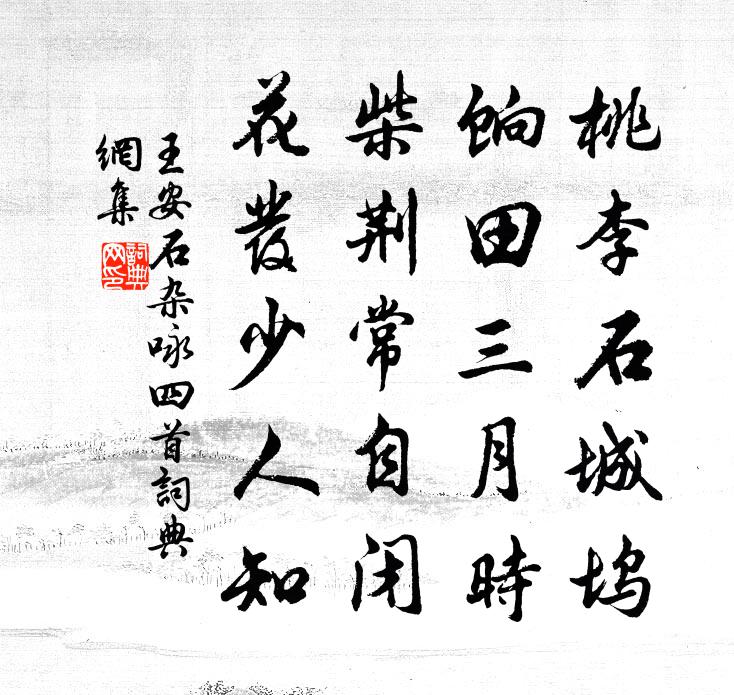 桃李石城坞
餉田三月時
柴荆常自闭
花發少人知
王安石杂咏四首詞典
網集
詞典網印